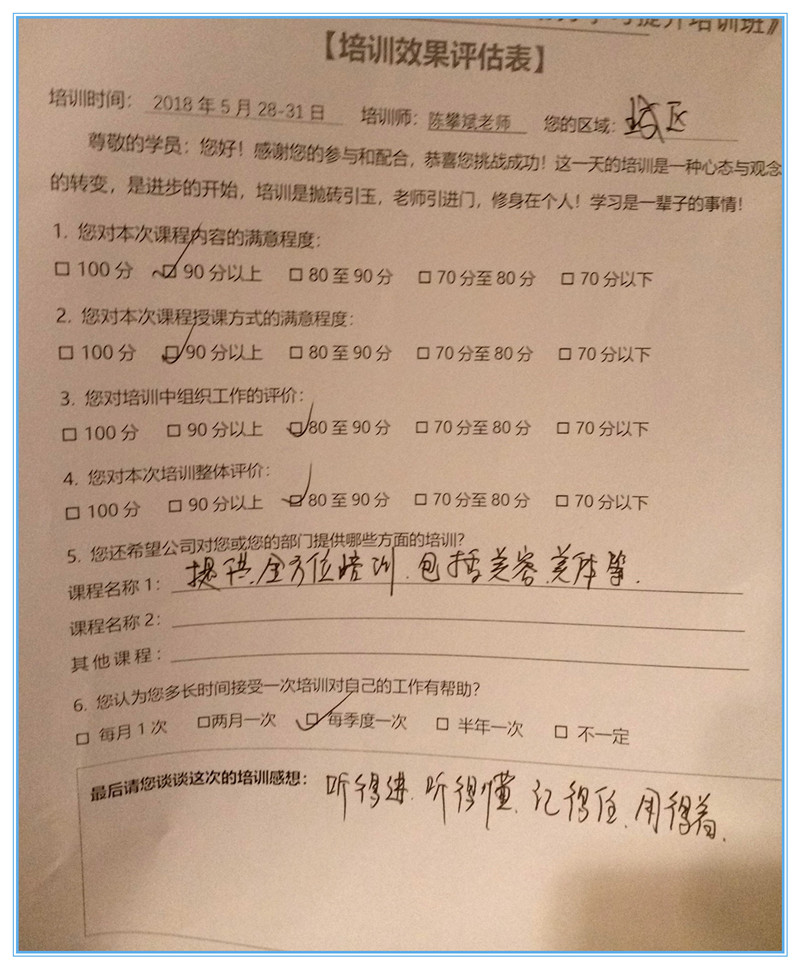 学习提升培训班》
【培训效果评估表】
培训时间： 2018 年 5 月 28-31 日 培训师：陈攀斌老师 您的区域：城区
尊敬的学员：您好！感谢您的参与和配合，恭喜您挑战成功！这一天的培训是一种心态与观念
的转变，是进步的开始，培训是抛砖引玉，老师引进门，修身在个人！学习是一辈子的事情！
1. 您对本次课程内容的满意程度：
□ 100 分 □ 90 分以上 □ 80 至 90 分 □ 70 分至 80 分 □ 70 分以下
2. 您对本次课程授课方式的满意程度：
□ 100 分 □ 90 分以上 □ 80 至 90 分 □ 70 分至 80 分 □ 70 分以下
3. 您对培训中组织工作的评价：
□ 100 分 □ 90 分以上 □ 80 至 90 分 □ 70 分至 80 分 □ 70 分以下
4. 您对本次培训整体评价：
□ 100 分 □ 90 分以上 □ 80 至 90 分 □ 70 分至 80 分 □ 70 分以下
5. 您还希望公司对您或您的部门提供哪些方面的培训？
课程名称 1： 提供全方位培训.包括美容.美体等.
课程名称 2：
其 他 课 程：
6. 您认为您多长时间接受一次培训对自己的工作有帮助？
□ 每月 1 次 □两月一次 □ 每季度一次 □ 半年一次 □ 不一定
最后请您谈谈这次的培训感想： 听得进.听得懂.记得住.用得着.